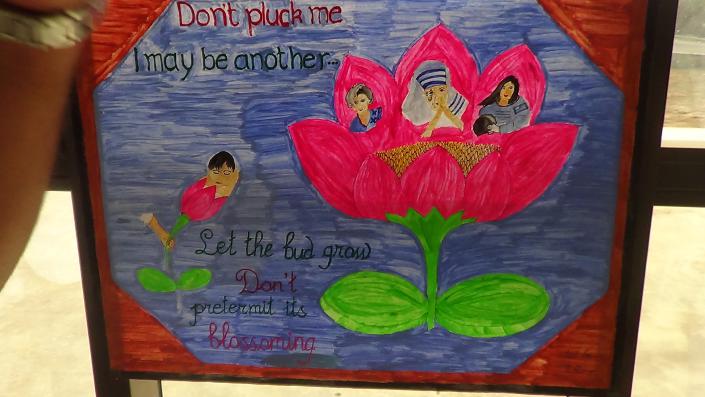 Don't pluck me
I may be another..
Let the bud grow
Don't
pretermit its
blossoming